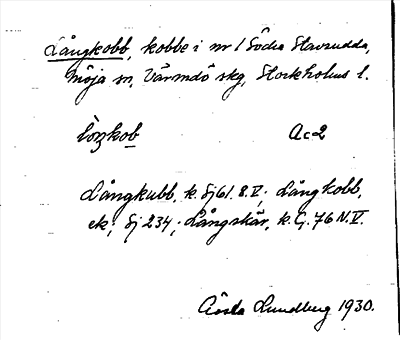 Långkobb, kobbe i nr 1 Södra Stavsudda,
Möja sn, Värmdö skg, Stockholms l.
lòŋkob Ac2
Långkubb, k. Sj 61. 8. V; Långkobb,
ek; Sj 234; Långskär, k. G. 76 N.V.
Gösta Lundberg 1930.